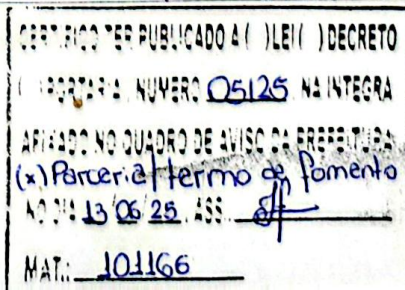 CERTIFICO TER PUBLICADO A ( )LEI( )DECRETO
( )PORTARIA, NUMERO 05125 NA INTEGRA
AFIXADO NO QUADRO DE AVISO DA PREFEITURA
(x) Parceria/termo de fomento
NO DIA 13/06/25, ASS.
MAT.: 101166